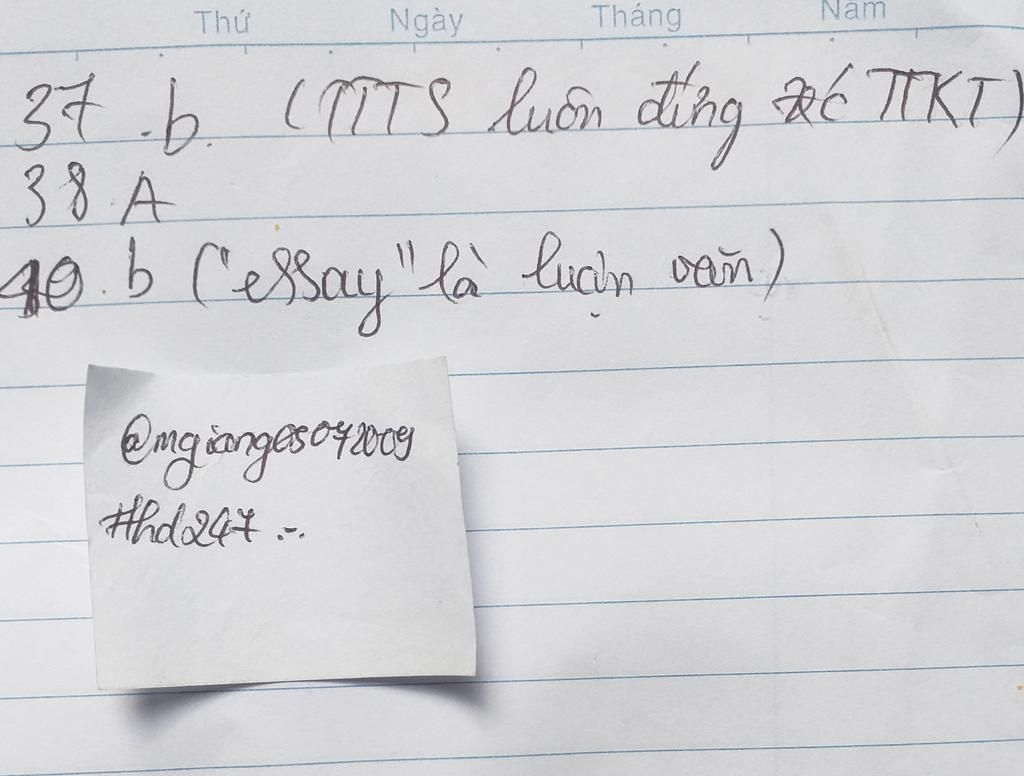 Thứ Ngày Tháng Năm
37.b. (TTTS luôn đứng TTKT)
38 A
40.b ("essay" là luận văn)
@mgiang05072009
#hd247